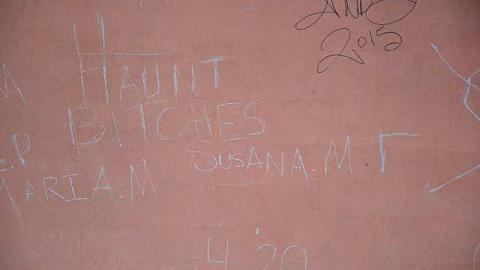 2015
HAUNT
BITCHES
SUSANA.M
MARIA.M
4 20